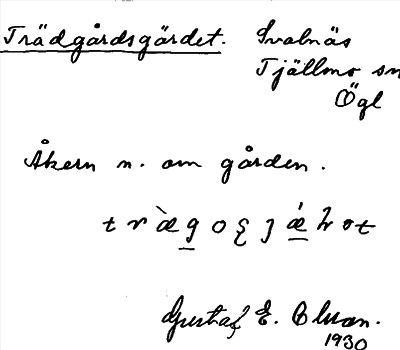 Trädgårdsgärdet. Svalnäs
Tjällmo sn
Ögl
Åkern n. om gården.
Gustaf E. Olson.
1930